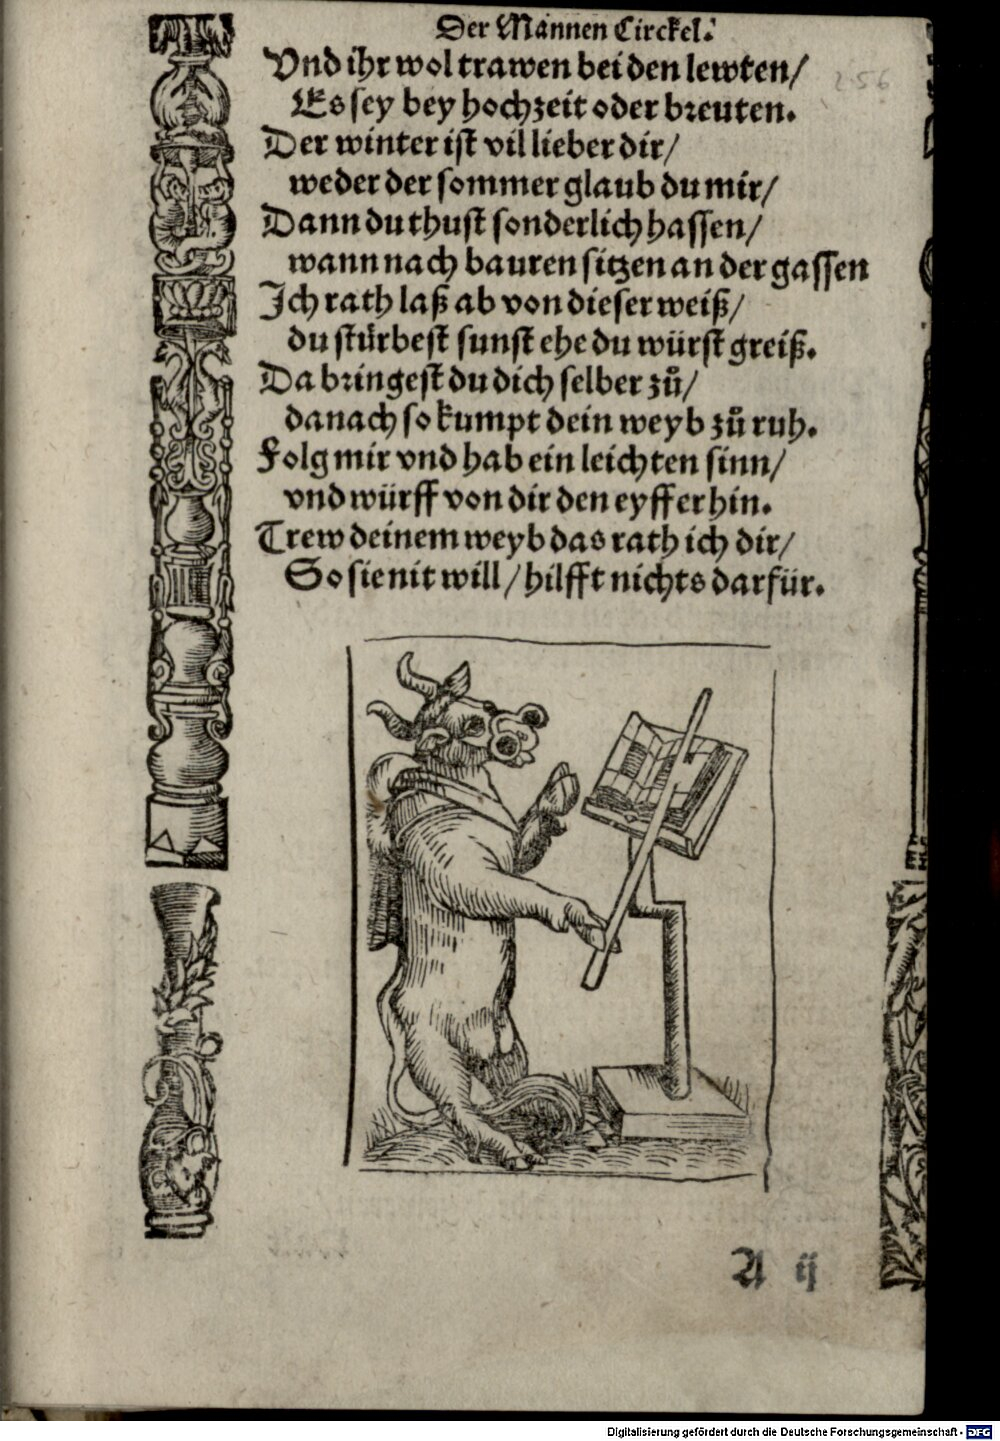 Der Mannen Circkel.
Vnd ihr wol trawen bei den lewten/
Es sey bey hochzeit oder breuten.
Der winter ist vil lieber dir/
weder der sommer glaub du mir/
Dann du thust sonderlich hassen/
wann nach bauren sitzen an der gassen
Ich rath laß ab von dieser weiß/
du stürbest sunst ehe du würst greiß.
Da bringest du dich selber zuͦ/
danach so kumpt dein weyb zuͦ ruh.
Folg mir vnd hab ein leichten sinn/
vnd würff von dir den eyffer hin.
Trew deinem weyb das rath ich dir/
So sie nit will/ hilfft nichts darfür.
A ij
Digitalisierung gefördert durch die Deutsche Forschungsgemeinschaft - DFG